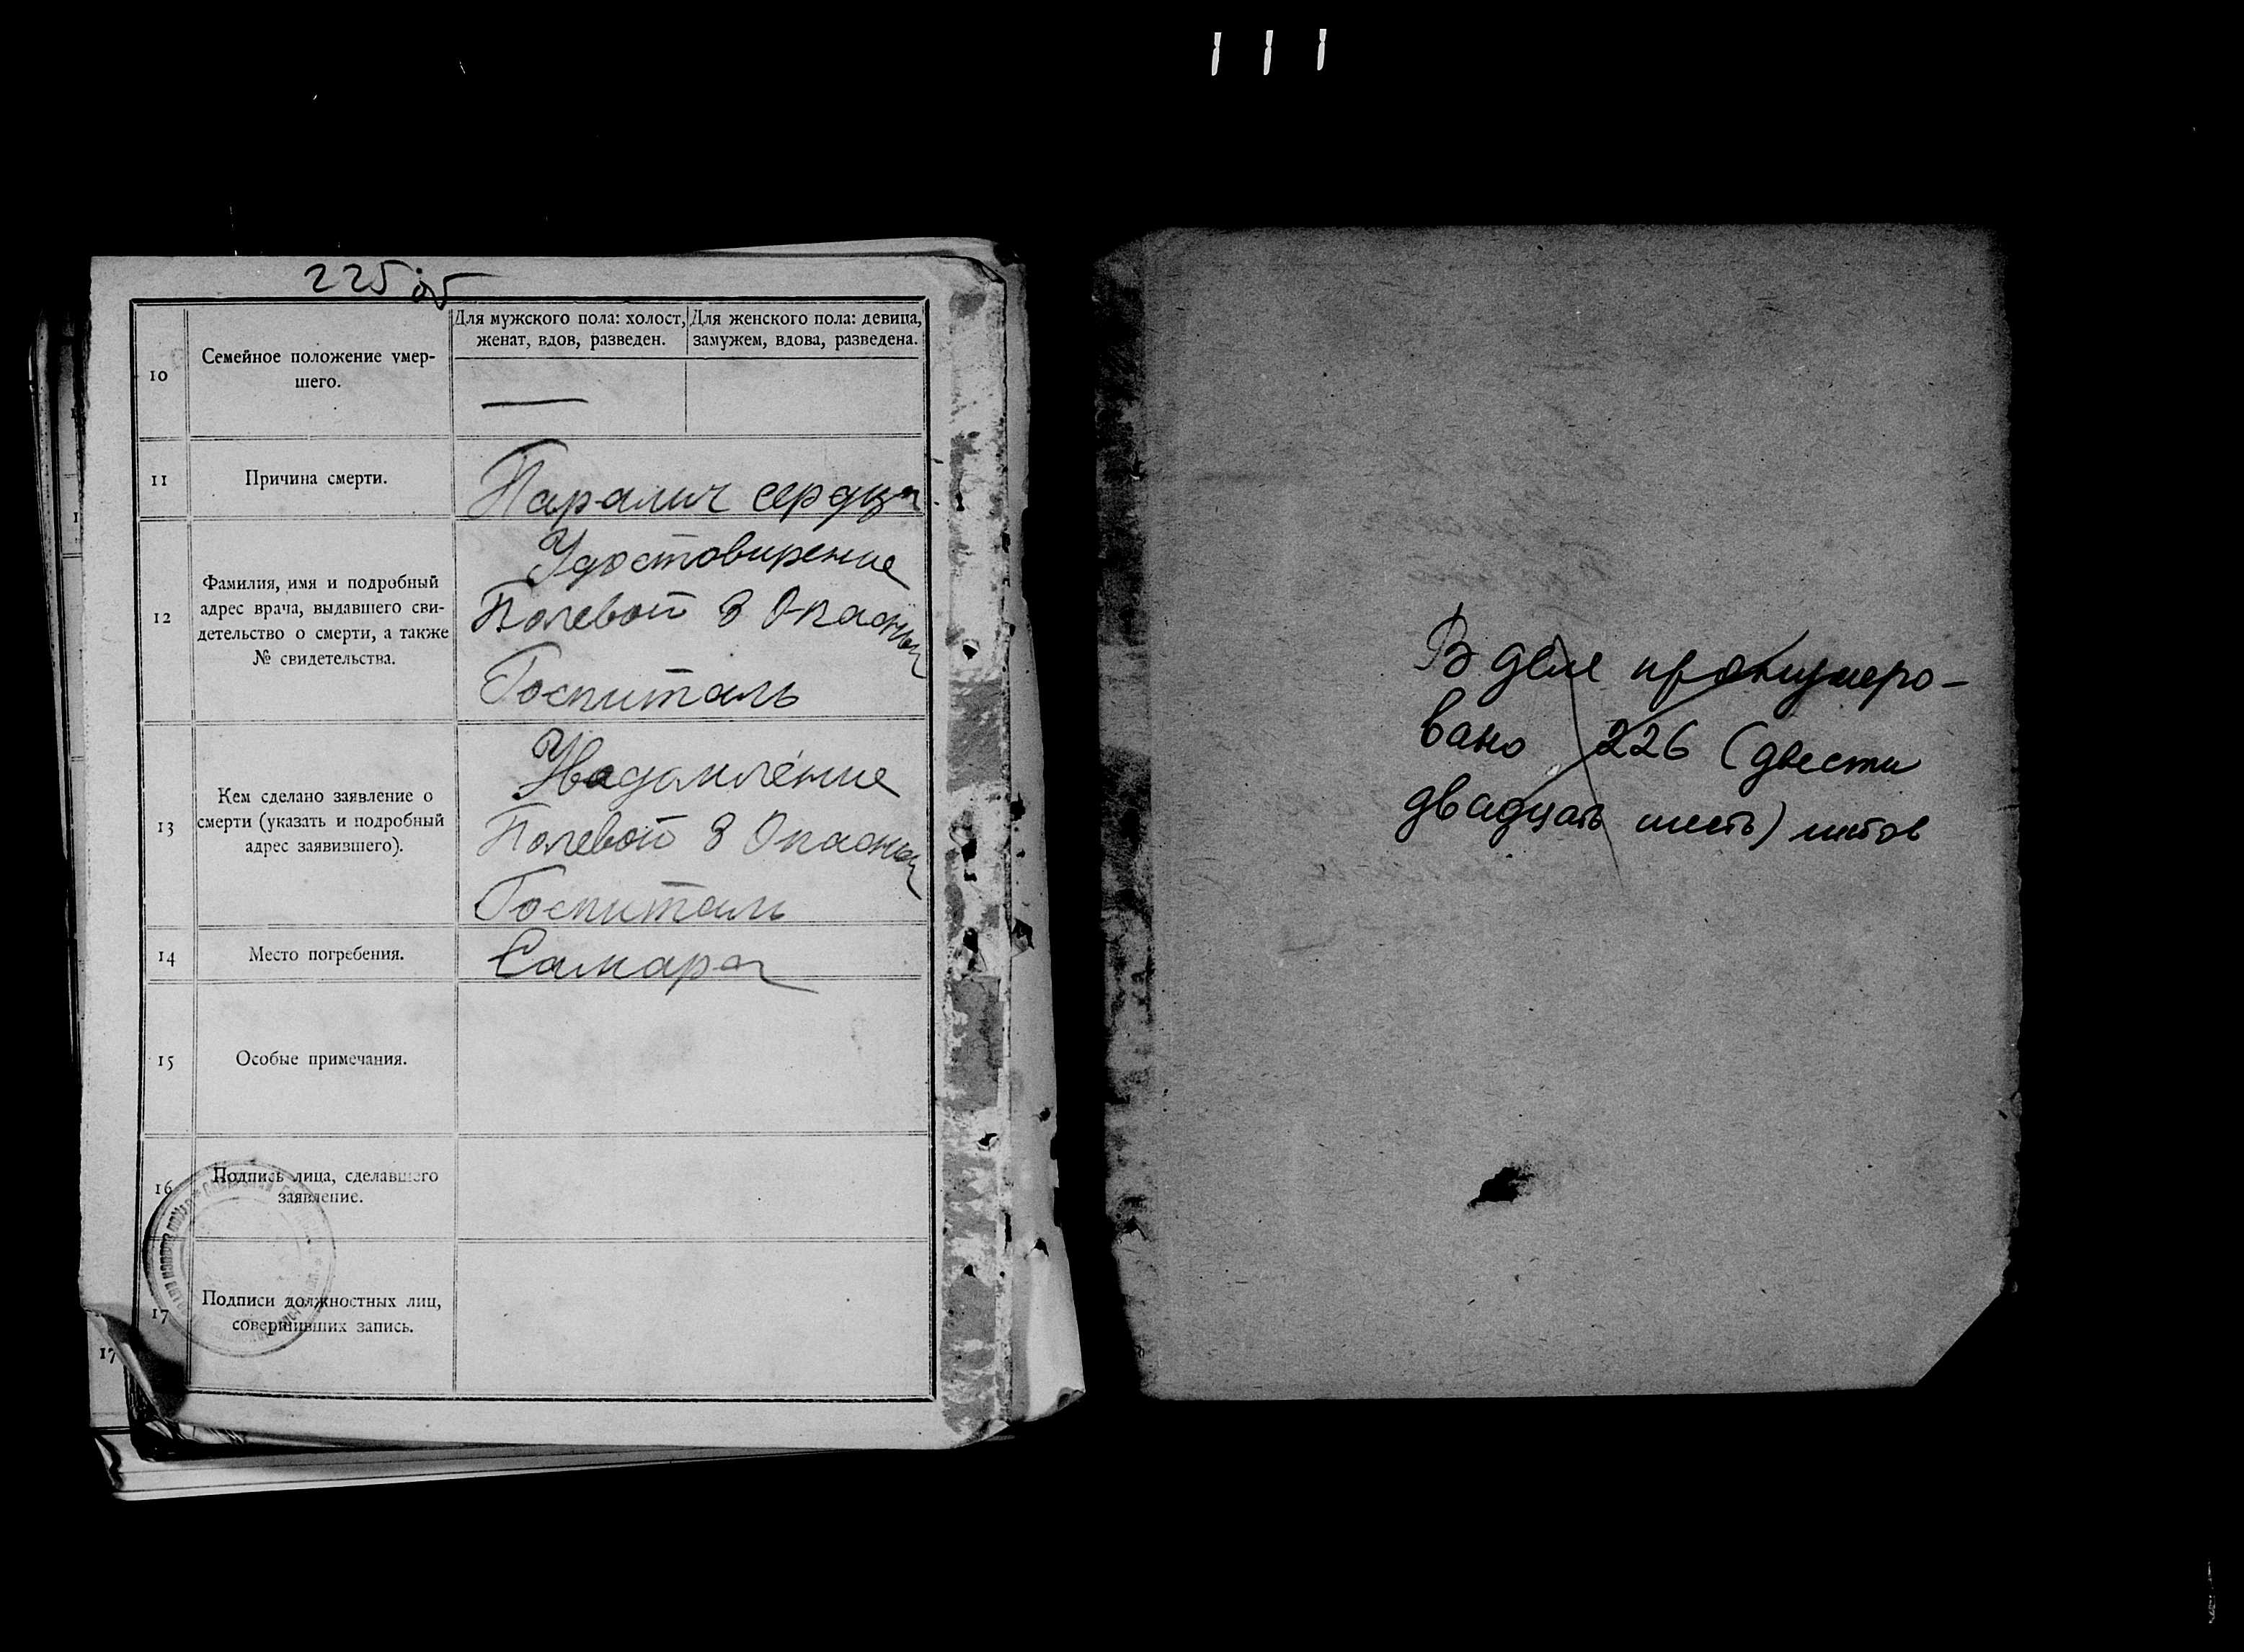 225 об
10
Семейное положение умер-
шего.
Для мужского пола: холост,
женат, вдов, разведен.
Для женского пола: девица,
замужем, вдова, разведена.
—
11
Причина смерти.
Паралич сердца
12
Фамилия, имя и подробный
адрес врача, выдавшего сви-
детельство о смерти, а также
№ свидетельства.
Удостовирение
Полевой 3 Опасный
Госпиталь
13
Кем сделано заявление о
смерти (указать и подробный
адрес заявившего).
Уведомление
Полевой 3 Опасный
Госпиталь
14
Место погребения.
Самара
15
Особые примечания.
16
Подпись лица, сделавшего
заявление.
17
Подписи должностных лиц,
совершивших запись.
17
В деле пронумеро-
вано 226 (двести
двадцать шесть) листов